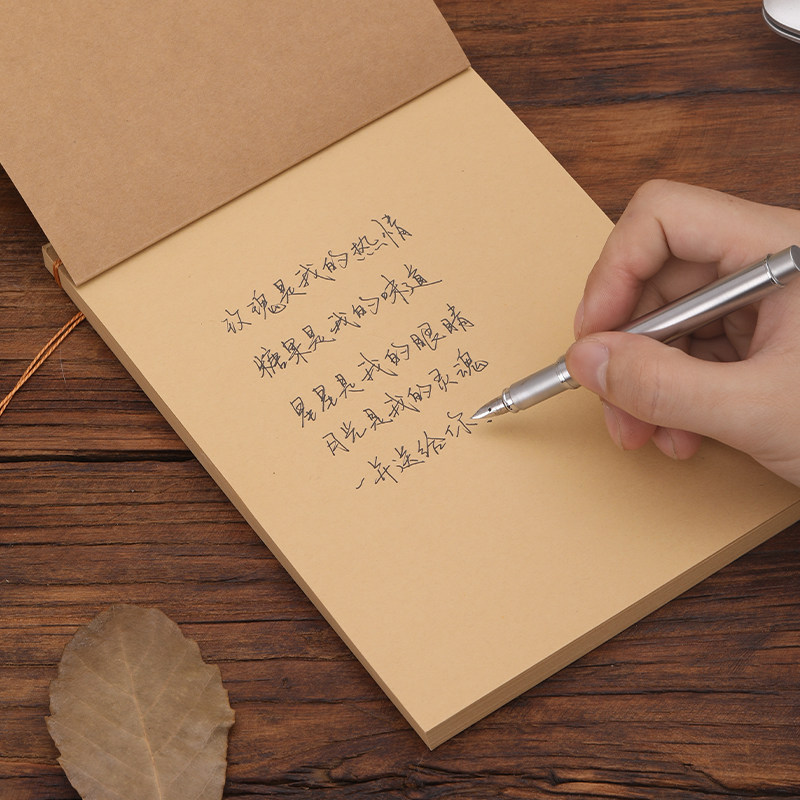 玫瑰是我的热情
糖果是我的味道
星星是我的眼睛
月光是我的灵魂
一并送给你